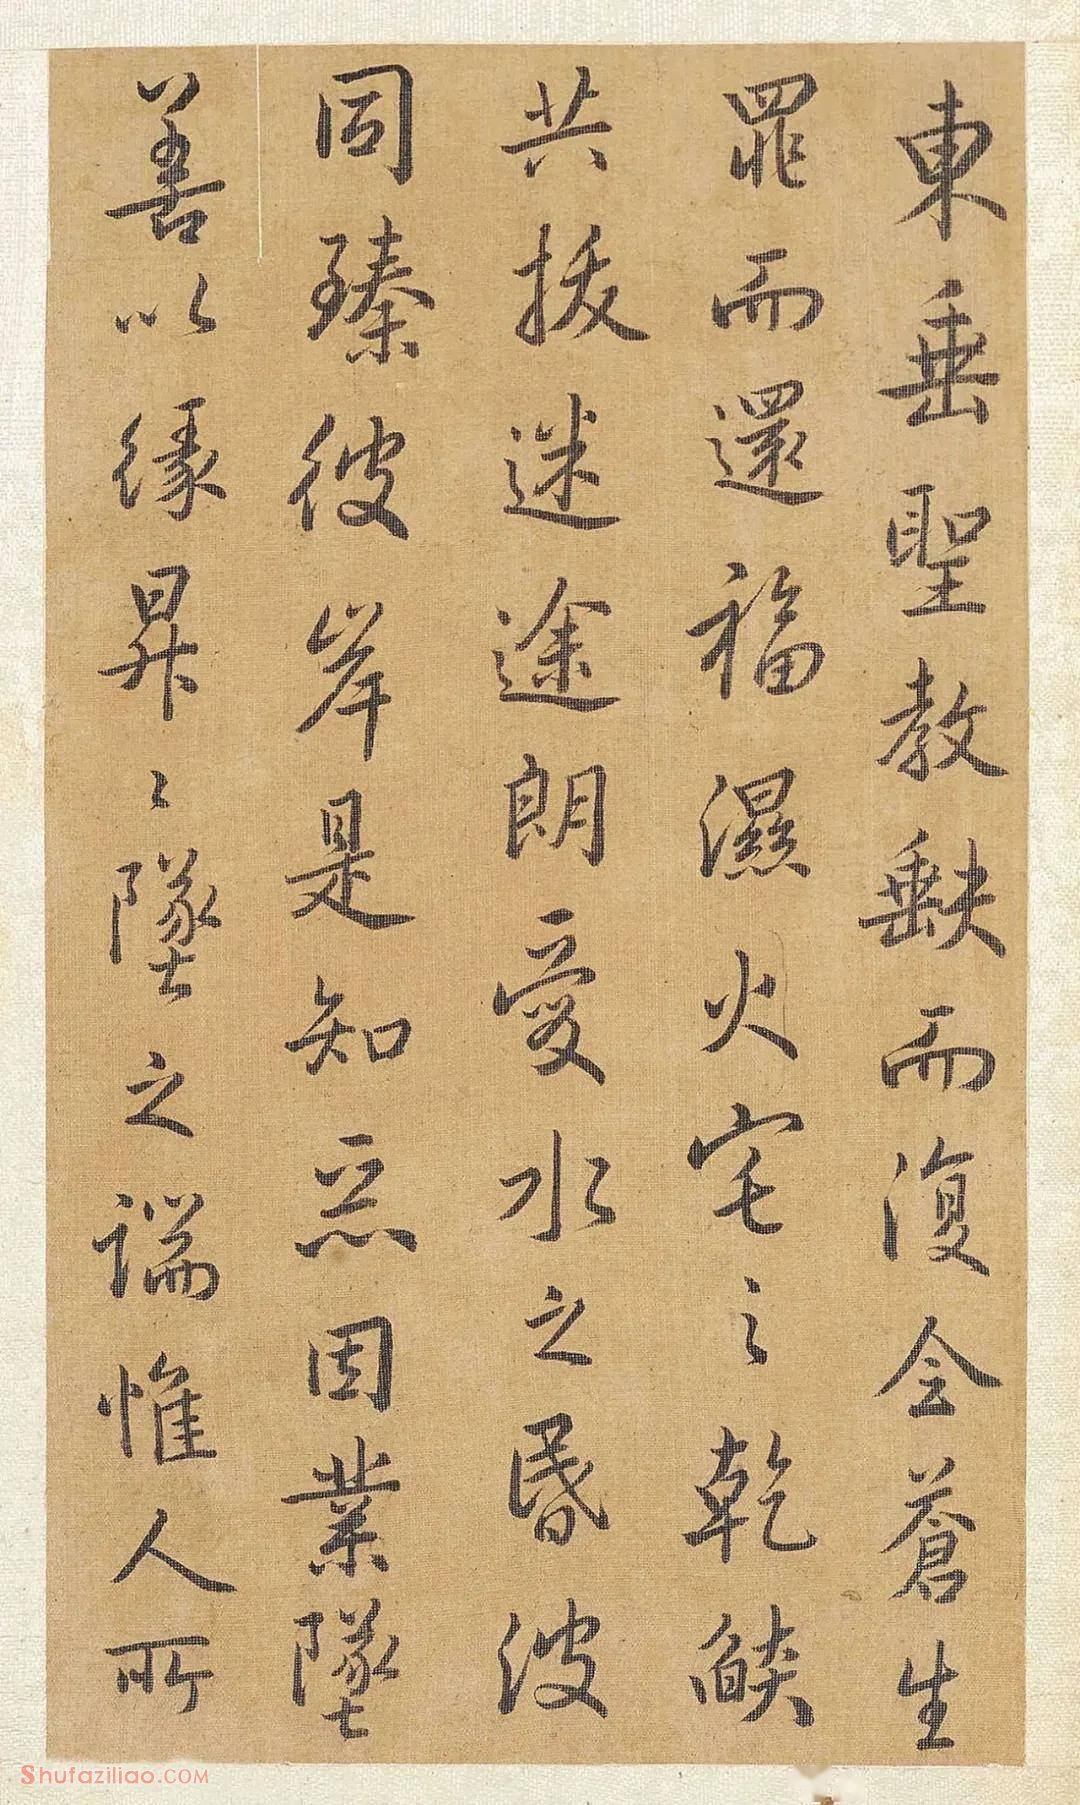 東垂聖教缺而復全蒼生
罪而還福濕火宅之乾燄
共拔迷途朗愛水之昏波
同臻彼岸是知惡因業墜
善以緣昇〻墜之端惟人所
Shufaziliao.COM